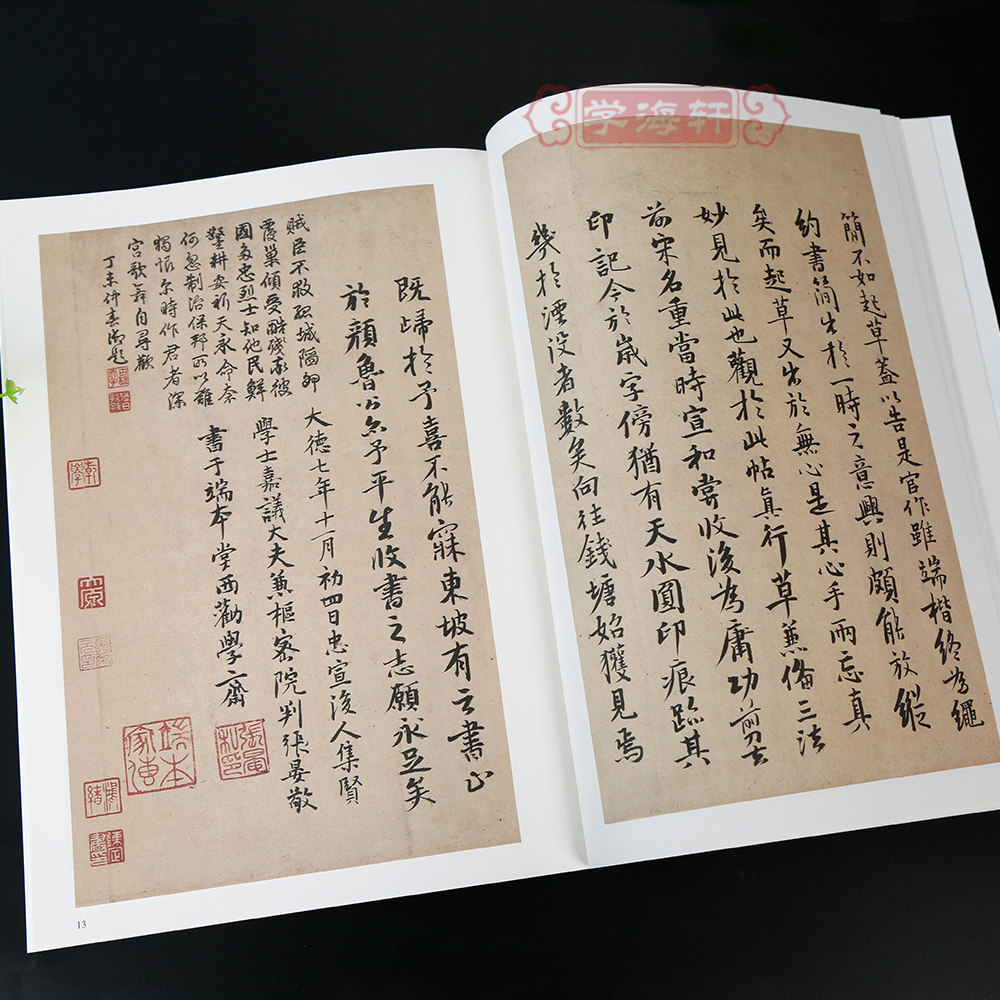 学海轩
簡不如起草蓋以告是官作雖端楷終為繩
約書簡出於一時之意興則頗能放縱
矣而起草又出於無心是其心手兩忘真
妙見於此也觀於此帖真行草兼備三法
前宋名重當時宣和嘗收後為庸功剪去
印記今於嵗字傍猶有天水圓印痕跡其
幾於湮没者數矣向往錢塘始獲見焉
既歸於予喜不能寐東坡有云書止
於顔魯公予平生收書之志願永足矣
大德七年十一月初四日忠宣後人集賢
學士嘉議大夫兼樞密院判張晏敬
書于端本堂西勸學齋
賊臣不救孤城隔卵
覆巢傾受酷殘家彼
國多忠烈士知他民鮮
鑿耕安祈天永命奈
何忽制治保邦所以難
獨恨尔時作君者深
宮歌舞自尋歡
丁未仲春御題
端本家傳
張晏私印
13